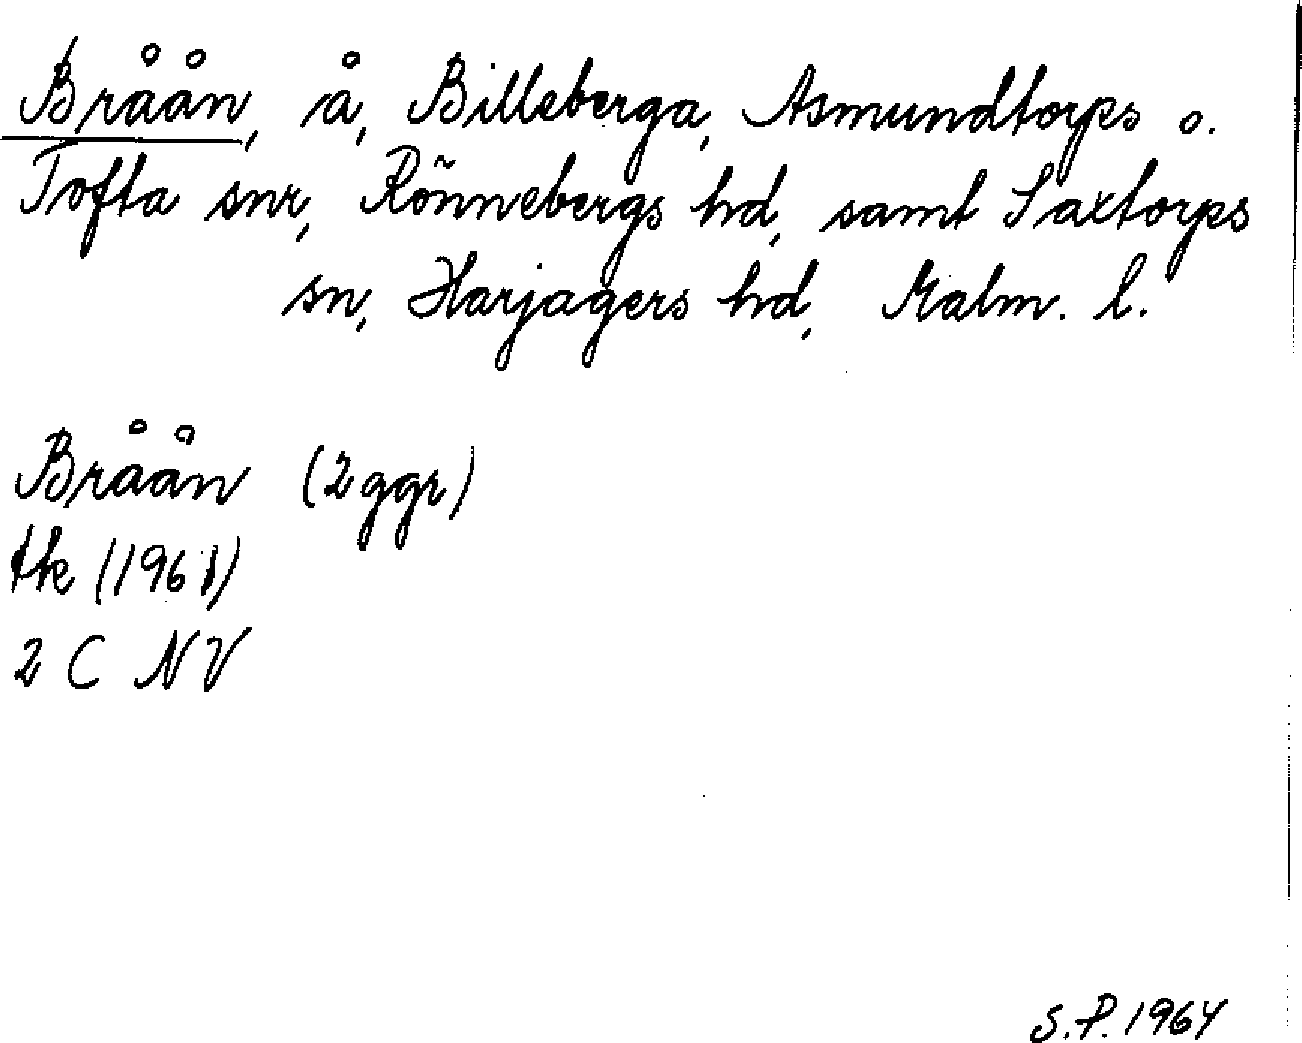 Bråån, å, Billeberga, Asmundtorps o.
Tofta snr, Rönnebergs hd, samt Saxtorps
sn, Harjagers hd, Malm. l.
Bråån (2 ggr)
tk (1961)
2 C NV
S.P. 1964